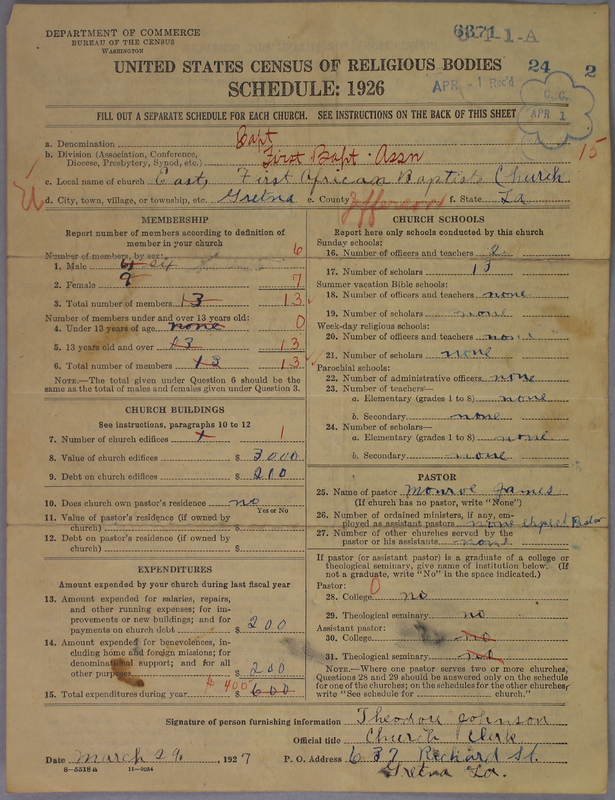 DEPARTMENT OF COMMERCE
BUREAU OF THE CENSUS
WASHINGTON
1-A
UNITED STATES CENSUS OF RELIGIOUS BODIES
24 2
SCHEDULE: 1926
APR - 1 Rec'd
C.G.
APR 1
FILL OUT A SEPARATE SCHEDULE FOR EACH CHURCH. SEE INSTRUCTIONS ON THE BACK OF THIS SHEET
a. Denomination Bapt
b. Division (Association, Conference, Diocese, Presbytery, Synod, etc.) First Bapt. Assn 15
c. Local name of church East, First African Baptist Church
d. City, town, village, or township, etc. Gretna e. County Jefferson f. State La
MEMBERSHIP
Report number of members according to definition of member in your church
Number of members, by sex:
1. Male 6 six 6
2. Female 7
3. Total number of members 13 13
Number of members under and over 13 years old:
4. Under 13 years of age none 0
5. 13 years old and over 13 13
6. Total number of members 13 13
NOTE.—The total given under Question 6 should be the same as the total of males and females given under Question 3.
CHURCH BUILDINGS
See instructions, paragraphs 10 to 12
7. Number of church edifices 1
8. Value of church edifices $ 3000
9. Debt on church edifices $ 200
10. Does church own pastor's residence no
Yes or No
11. Value of pastor's residence (if owned by church) $
12. Debt on pastor's residence (if owned by church) $
EXPENDITURES
Amount expended by your church during last fiscal year
13. Amount expended for salaries, repairs, and other running expenses; for improvements or new buildings; and for payments on church debt $ 200
14. Amount expended for benevolences, including home and foreign missions; for denominational support; and for all other purposes $ 200
15. Total expenditures during year $ 400 $ 600
CHURCH SCHOOLS
Report here only schools conducted by this church
Sunday schools:
16. Number of officers and teachers 2
17. Number of scholars 13
Summer vacation Bible schools:
18. Number of officers and teachers none
19. Number of scholars none
Week-day religious schools:
20. Number of officers and teachers none
21. Number of scholars none
Parochial schools:
22. Number of administrative officers none
23. Number of teachers—
a. Elementary (grades 1 to 8) none
b. Secondary none
24. Number of scholars—
a. Elementary (grades 1 to 8) none
b. Secondary none
PASTOR
25. Name of pastor Monroe James
(If church has no pastor, write "None")
26. Number of ordained ministers, if any, employed as assistant pastors none expect Pastor
27. Number of other churches served by the pastor or his assistants none
If pastor (or assistant pastor) is a graduate of a college or theological seminary, give name of institution below. (If not a graduate, write "No" in the space indicated.)
Pastor:
28. College 0 no
29. Theological seminary no
Assistant pastor:
30. College no
31. Theological seminary no
NOTE.—Where one pastor serves two or more churches, Questions 28 and 29 should be answered only on the schedule for one of the churches; on the schedules for the other churches, write "See schedule for church."
Signature of person furnishing information Theodore Johnson
Official title Church Clerk
Date March 29, 1927 P. O. Address 637 Richard St.
8—5518a 11—9054 Gretna La.